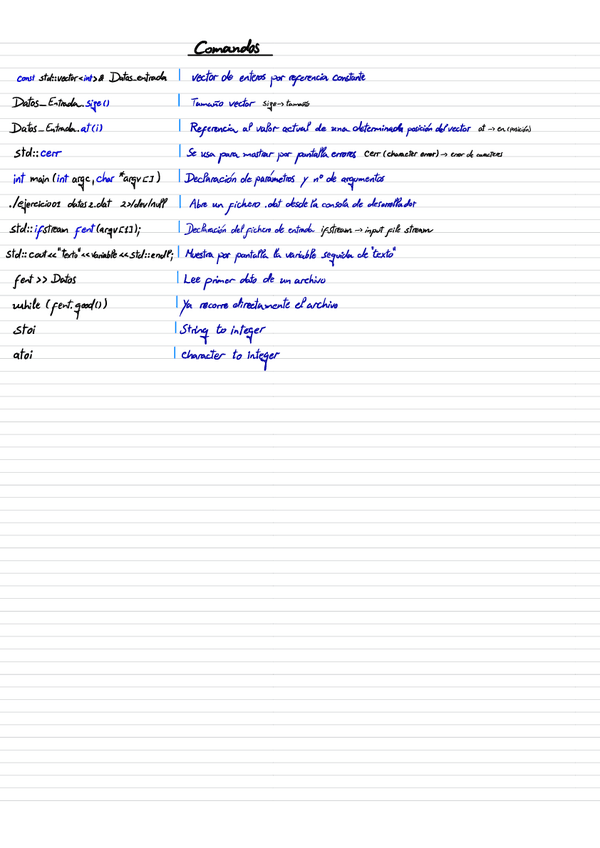 Comandos
const std::vector<int>& Datos_entrada | vector de enteros por referencia constante
Datos_Entrada.size() | Tamaño vector size → tamaño
Datos_Entrada.at(i) | Referencia al valor actual de una determinada posición del vector at → en (posición)
std::cerr | Se usa para mostrar por pantalla errores cerr (character error) → error de caracteres
int main (int argc, char *argv[]) | Declaración de parámetros y nº de argumentos
./ejercicio01 datos2.dat 2>/dev/null | Abre un fichero .dat desde la consola de desarrollador
std::ifstream fent(argv[1]); | Declaración del fichero de entrada ifstream → input file stream
std::cout<<"Texto"<<variable<<std::endl; | Muestra por pantalla la variable seguida de "texto"
fent >> Datos | Lee primer dato de un archivo
while (fent.good()) | Ya recorre directamente el archivo
stoi | String to integer
atoi | character to integer